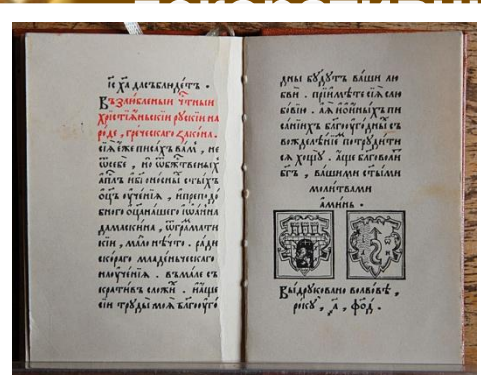 і҃с х҃а да съблюдетъ ·
Възлюбленыи чтныи
Христїаньскїи рускїи на
роде, греческаго закона.
сїѧ еже писахъ вамъ, не
ѿ себе, но ѿ бжтвеныхъ
апл҃ъ и бг҃оносныхъ ст҃ыхъ
ѿц҃ъ оученїѧ, и преподо
бнаго ѿц҃а нашего іѡанна
дамаскина, ѿ грамати
кїи, мало нѣчто. ради
скораго младеньческаго
наоученїѧ. въмале съ
кративъ сложи. и аще
сїи труды моѧ благоуго
дны будутъ ваши лю
бви. прїимѣте сїѧ с лю
бовїю. а ѧ и ѡ иныхъ пи
санїихъ благоугодныхъ съ
вожделѣнїе потрудити
сѧ хощу. аще благоволи
бг҃ъ, вашими ст҃ыми
молитвами
аминь ·
Выдруковано во львовѣ,
року, ҂а҃фо҃д.